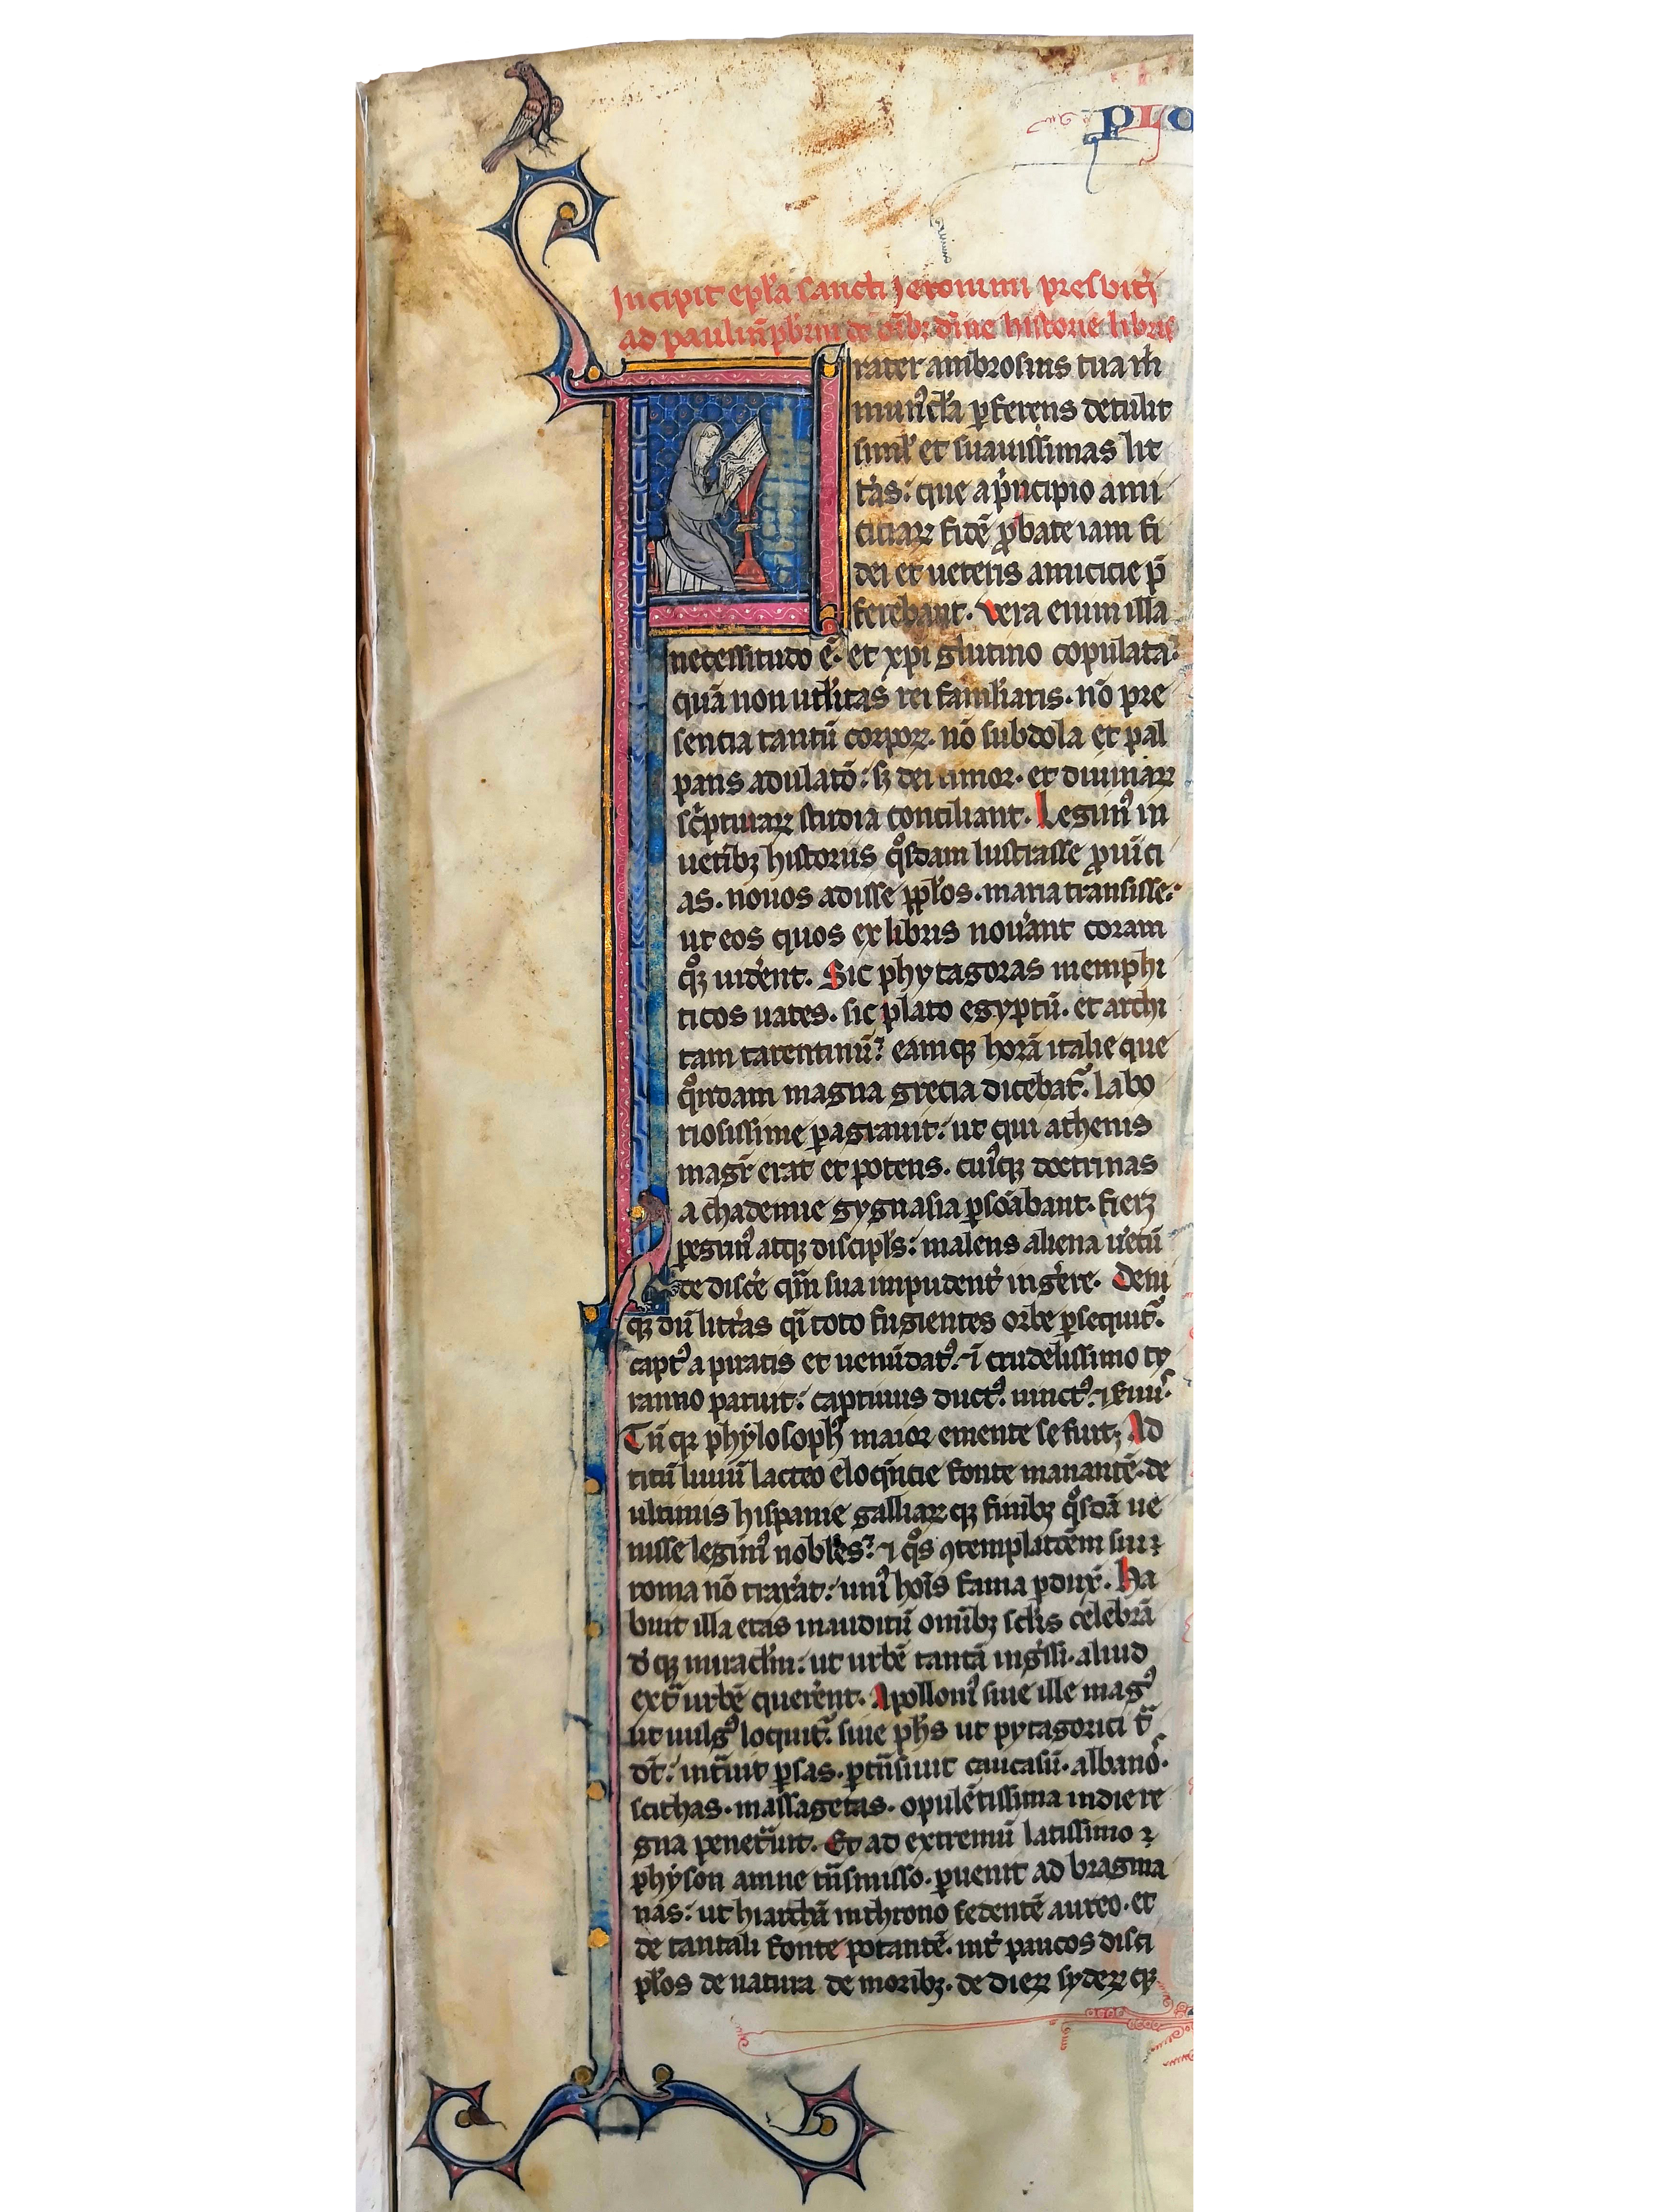 plo
Incipit epl̃a sancti Jeronimi presbit̾i
ad paulin̄ pb̄rm de om̄ib; diuine historie libris
Frater ambrosius tua m̄
mun᷒cl̃a ꝑferens detulit
siml̾ et suauissimas lit
t̾as: que a p̾ncipio ami
citiaꝝ fidē ꝓbate iam fi
dei et ueteris amicicie p̄
ferebant. Vera enim illa
necessitudo ē. et xp̄i glutino copulata:
quā non utl̾itas rei familiaris. nō pre
sencia tantū corpoꝝ. nō subdola et pal
pans adulatō: sꝫ dei timor. et diuinaꝝ
sc̾pturaꝝ studia conciliant. Legim᷒ in
uetib; historiis qͦsdam lustrasse ꝓuīci
as. nouos adisse ppl̾os. maria transisse:
ut eos quos ex libris nou̾ant coram
qͦꝫ uid̾ent. Sic phytagoras memphi
ticos uates. sic plato egyptū. et archi
tam tarentinū: eamqꝫ horā italie que
qͦndam magna grecia dicebat᷑. labo
riosissime ꝑagrauit: ut qui athenis
magr̄ erat et potens. cui᷒qꝫ doctrinas
achademie gygnasia ꝑsōabant. fieꝝ
ꝑegrin᷒ atqꝫ discipl̾s: malens aliena u̾ecū
de disc̾e qm̄ sua impudent̾ ing̾ere. Deni
qꝫ dū litt̾as q̄i toto fugientes orbe ꝑsequit᷑.
capt᷒ a piratis et uenūdat᷒. ⁊ crudelissimo ty
ranno paruit: captiuus duct᷒. uinct᷒. ⁊ s̾uus.
Tn̄ qꝛ phylosoph᷒ maior emente se fuit; Ad
titū liuiū lacteo eloqn̄cie fonte manantē. de
ultimis hispanie galliaꝝ qꝫ finib; qͦsdā ue
nisse legim᷒ nobl̾es: ⁊ qͦs ꝯtemplatōem sui
roma nō trax̾at: uni᷒ hoīs fama ꝑdux̄. Ha
buit illa etas inauditū omīb; scl̾is celebrā
d̄ qꝫ miracl̾m: ut urbē tantā ing̾ssi. aliud
ext̄ urbē quer̾ent. Apolloni᷒ siue ille mag᷒
ut uulg᷒ loquit᷑. siue ph̄s ut pytagorici t̄
dt̄: int̄uit ꝑsas. ꝑtn̄siuit caucasū. albanos.
scithas. massagetas. opulētissima indie re
gna penet̄uit. Et ad extremū latissimo
physon amne tn̄smisso. ꝑuenit ad bragma
nas: ut hiarchā in throno sedentē aureo. et
de tantali fonte potantē. int̾ paucos disci
pl̾os de natura de morib;. de dieꝝ sydeꝝ qꝫ